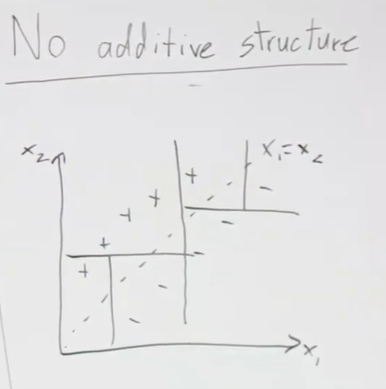 No additive structure
x₂
x₁=x₂
+ + + + + - - - - -
x₁